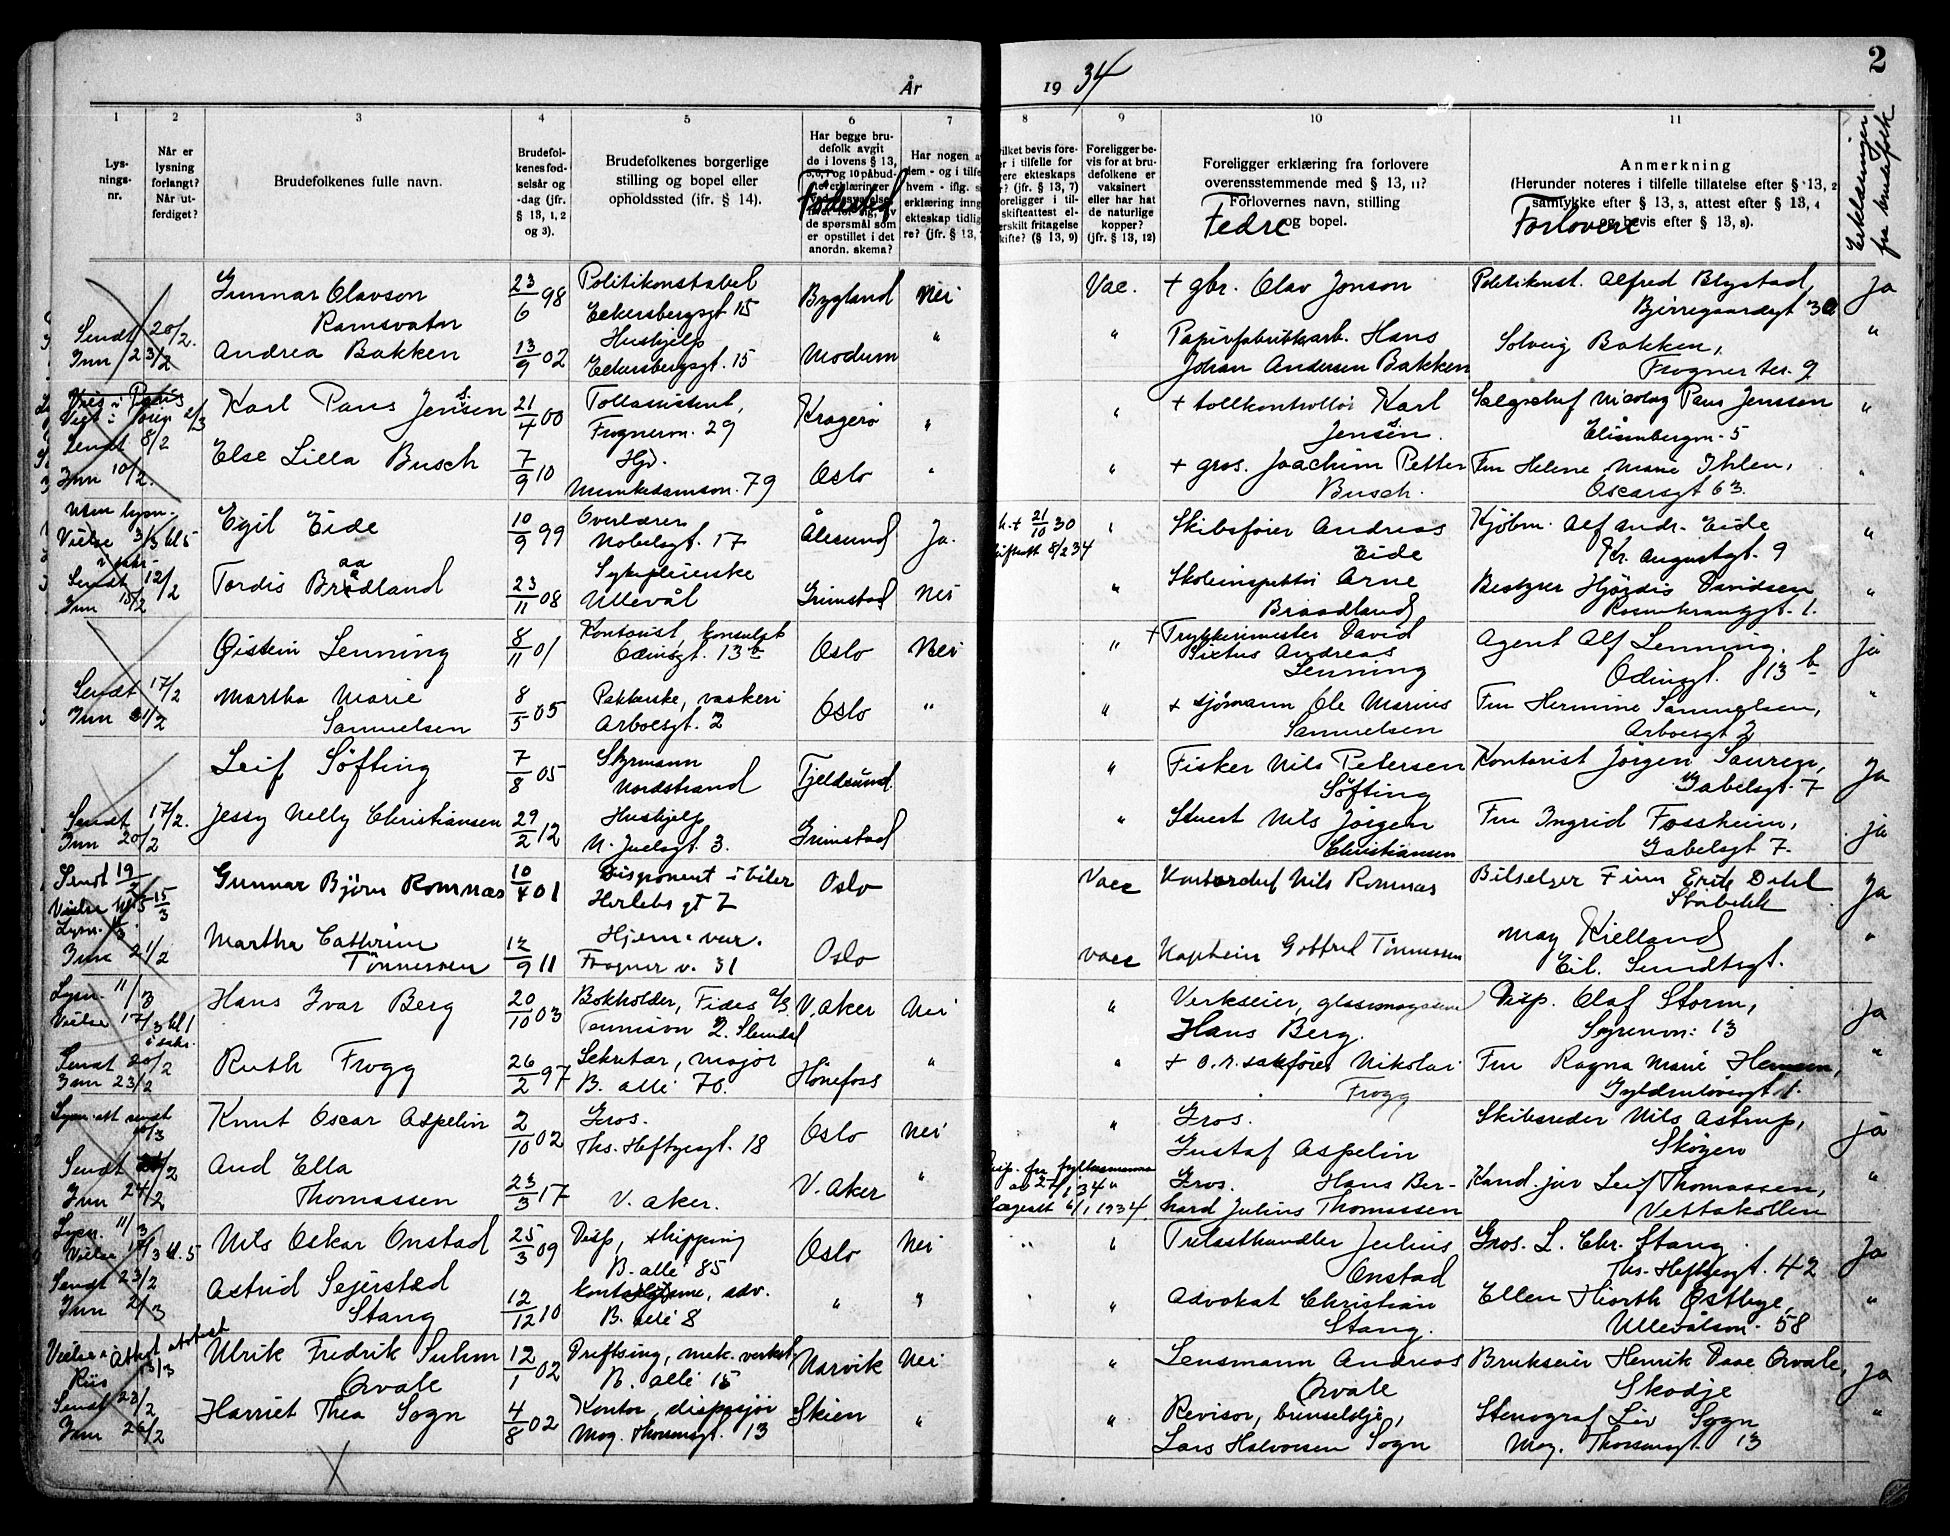 År 1934
2
1 2 3 4 5 6 7 8 9 10 11
Lys-
nings-
nr.
Når er
lysning
forlangt?
Når ut-
ferdiget?
Brudefolkenes fulle navn.
Brudefol-
kenes fød-
selsår og
-dag (jfr.
§ 13, 1, 2
og 3).
Brudefolkenes borgerlige
stilling og bopel eller
opholdssted (jfr. § 14).
Har begge bru-
defolk avgit
de i lovens § 13,
5, 6, 7 og 10 påbud-
de spørsmål som
er opstillet i det
anordn. skema?
Fødested
Har nogen a
dem - og i tilfe
hvem - iflg. s
erklæring inng
ekteskap tidlig
re? (jfr. § 13,
vilket bevis fore-
r i tilfelle for
ere ekteskaps
r? (jfr. § 13, 7)
oreligger i til-
skifteattest el-
erskilt fritagelse
kifte? (§ 13, 9)
Foreligger be-
vis for at bru-
defolkene er
vaksinert
eller har hat
de naturlige
kopper?
(jfr. § 13, 12)
Foreligger erklæring fra forlovere
overensstemmende med § 13, 11?
Forlovernes navn, stilling
og bopel.
Fedre
Anmerkning
(Herunder noteres i tilfelle tillatelse efter § 13, 2
samtykke efter § 13, 3, attest efter § 13, 4
og bevis efter § 13, 8).
Forlovere
Erklæringer
fra brudefolk
Gunnar Olavson 23/6 98 Politikonstabel Bygland Nei Vac. + gbr. Olav Jonson Politikonst. Alfred Blystad Ja
Ramsvatn Eckersbergsgt 15 Bjerregaardsgt 30
Sendt 20/2. Inn 23/2
Andrea Bakken 13/9 02 Hushjelp Modum " " Papirfabrikkarb. Hans Solveig Bakken, "
Eckersbergsgt. 15 Johan Andersen Bakken Frogner ter. 9
Karl Paus Jenssen 21/4 00 Tollassistent, Kragerø " " + tollkontrollør Karl Salgschef Nicolay Paus Jenssen "
Frognerv. 29 Jensen. Elisenbergvn. 5
Sendt 8/2 Inn 10/2.
Else Lilla Busch 7/9 10 Hjv. Oslo " " + gros. Joachim Petter Fru Helene Marie Ihlen, "
Munkedamsvn. 79 Busch. Oscarsgt 63.
Uten lysn. Vielse 3/3 kl 5
Egil Eide 10/9 99 Overlærer Ålesund Ja. 21/10 30 " Skibsfører Andreas Kjøbm. Alf Andr. Eide "
Nobelsgt. 17 8/2 34 Eide Kr. Augustsgt. 9
Sendt 12/2 Inn 15/2
Tordis Braadland 23/11 08 Sykepleierske Grimstad Nei " Skoleinspektør Arne Bestyrer Hjørdis Davidsen "
Ullevål Braadland Rosenkrantzgt. 1.
Øistein Lenning 8/11 01 Kontorist, konsulat Oslo Nei " + Trykkerimester David Agent Alf Lenning. ja
Odinsgt. 13 b Sixtus Andreas Odinsgt. 13 b
Lenning
Sendt 17/2 Inn 21/2
Martha Marie 8/5 05 Pakkerske, vaskeri Oslo " " + sjømann Ole Marius Fru Hermine Samuelsen, "
Samuelsen Arboesgt. 2 Samuelsen Arboesgt 2
Leif Søfting 7/8 05 Styrmann Tjeldsund " Fisker Nils Petersen Kontorist Jørgen Sauren, Ja
Nordstrand Søfting Gabelsgt. 7
Sendt 17/2. Inn 20/2
Jessy Nelly Christiansen 29/2 12 Hushjelp Grimstad " Stuert Nils Jørgen Fru Ingrid Fossheim, ja
N. Juelsgt. 3. Christiansen Gabelsgt 7.
Sendt 19/2 Vielse kl 5 15/3
Gunnar Bjørn Romnæs 10/4 01 Disponent i biler Oslo Vacc Kontorchef Nils Romnæs Bilselger Finn Erik Dehl Ja
Herlebsgt 7 Stabekk
Inn 21/2
Martha Cathrine 12/9 11 Hjem. vær. Oslo vacc Kaptein Gottfred Tønnessen May Kielland "
Tønnessen Frogner v. 31 Eil. Sundtsgt.
Lysn. 11/3 Vielse 17/3 kl 1 i sakr.
Hans Ivar Berg 20/10 03 Bokholder, Fides A/S. V. Aker Nei " Verkseier, glassmagasin Disp. Olaf Storm, Ja
Tennisvn 2. Slemdal Hans Berg. Syrenvn: 13
Sendt 20/2 Inn 23/2
Ruth Frogg 26/2 97 Sekretær, major Hønefoss " " + o.r. sakfører Nikolai Fru Ragna Marie Hansen, "
B. alle 70. Frogg Gyldenløvesgt 1.
Lysn. att sendt 10/3
Knut Oscar Aspelin 2/10 02 Gros. Oslo Nei " Gros. Skibsreder Nils Astrup, ja
Ths. Heftyesgt. 18 Gustaf Aspelin Skøyen
Sendt 21/2 Inn 24/2
Aud Ella 23/3 17 V. Aker. V. Aker " Disp. fra fylkesmannen av 27/1 34 " Gros. Hans Ber- Kand. jur Leif Thomassen, "
Thomassen Lægeatt 6/1 1934. hard Julius Thomassen Vettakollen
Lysn. 11/3 Vielse 17/3 kl. 5
Nils Oskar Onstad 25/3 09 Disp, shipping Oslo Nei " " Trelasthandler Julius Gros. L. Chr. Stang Ja
B. alle 85 Onstad Ths. Heftyesgt. 42
Sendt 23/2 Inn 2/3
Astrid Sejersted 12/12 10 kontor, adv. " " " Advokat Christian Ellen Hiorth Østbye, "
Stang B. alle 8 Stang. Ullevålsvn. 58
Vielse Riis 13/3
Ulrik Fredrik Suhm 12/1 02 Driftsing, mek. verkst. Narvik Nei " Lensmann Andreas Brukseier Henrik Daae Ørvale, Ja
Ørvale B. alle 15 Ørvale Skodje
Sendt 23/2 Inn 26/2
Harriet Thea Sogn 4/8 02 Kontor, dispasjør Skien " " Revisor, brenselolje, Stenograf Liv Sogn "
Mag. Thorsensgt. 13 Lars Halvorsen Sogn Mag. Thorsensgt. 13